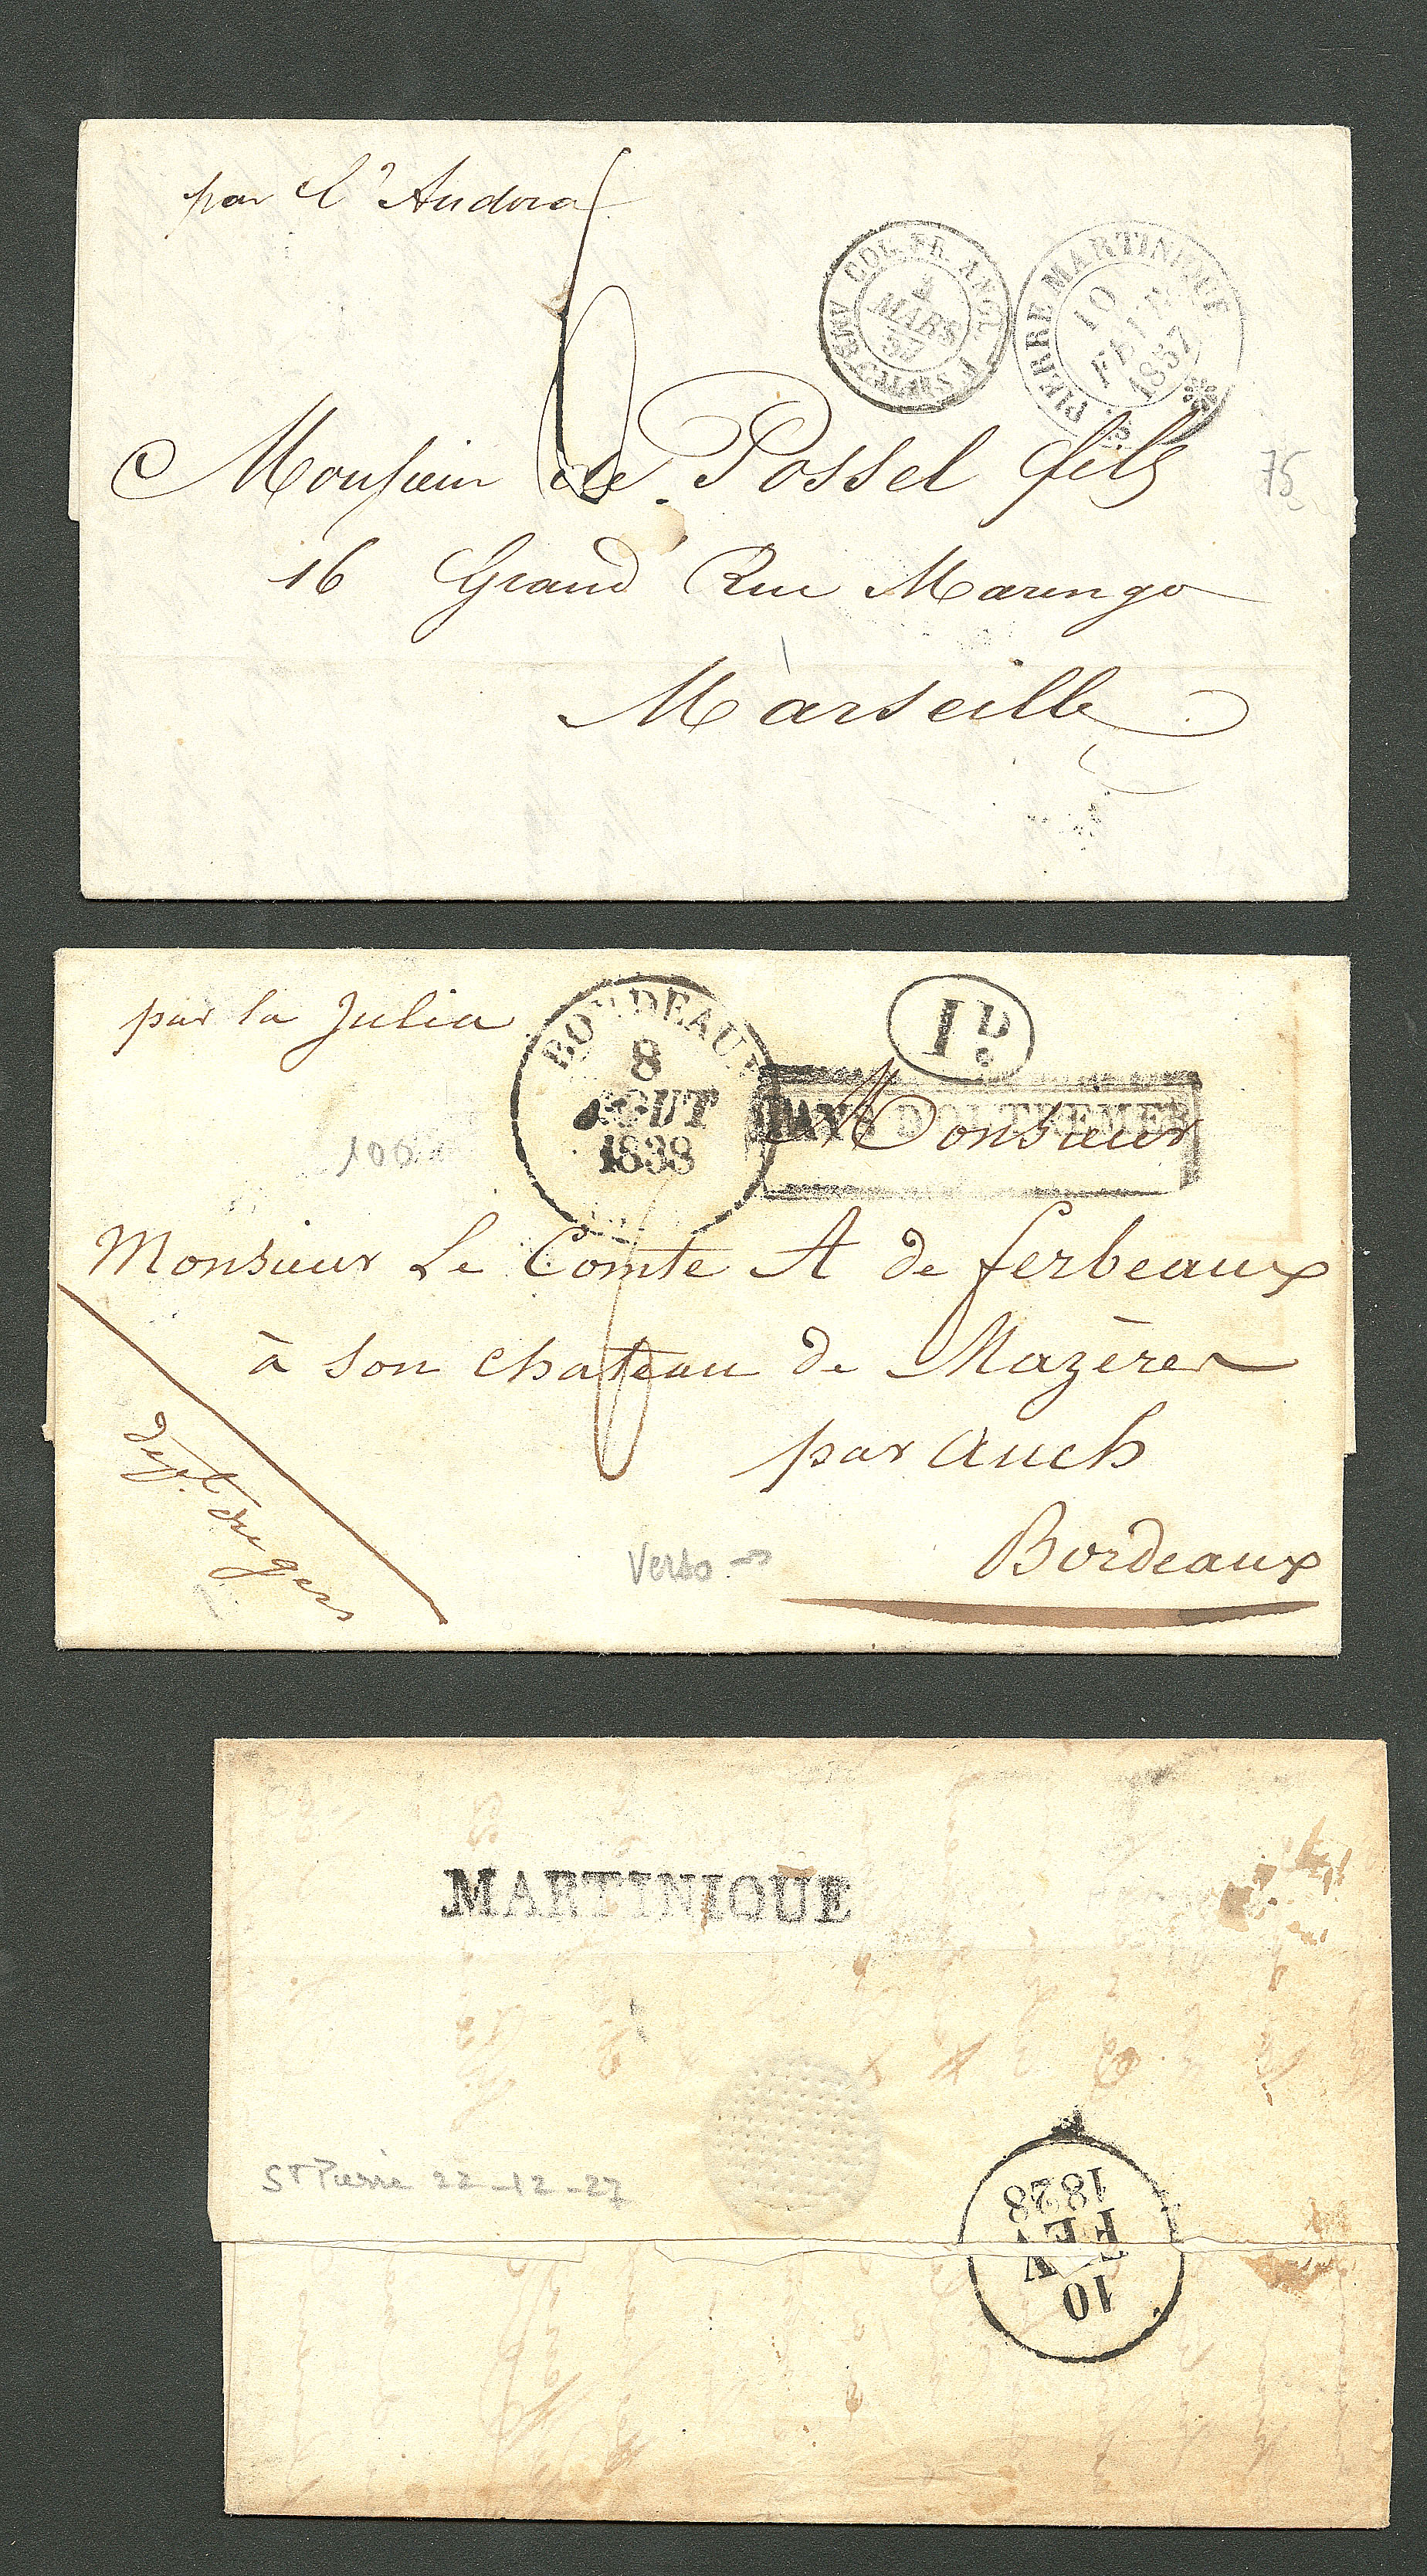 par l'Andora
COL. FR. ANGL. AMB. CALAIS
MARS
57
ST PIERRE MARTINIQUE
10
FEVR
1857
6
Monsieur de Possel fils
75
16 Grand Rue Marengo
Marseille
par la Julia
BORDEAUX
8
AOUT
1838
1D.
PAYS D'OUTREMER
Monsieur
100
Monsieur Le Comte A de ferbeaux
à son chateau de Mazères
par Auch
Bordeaux
dept. du gers
Verso
MARTINIQUE
St Pierre 22-12-27
10
FEV
1828